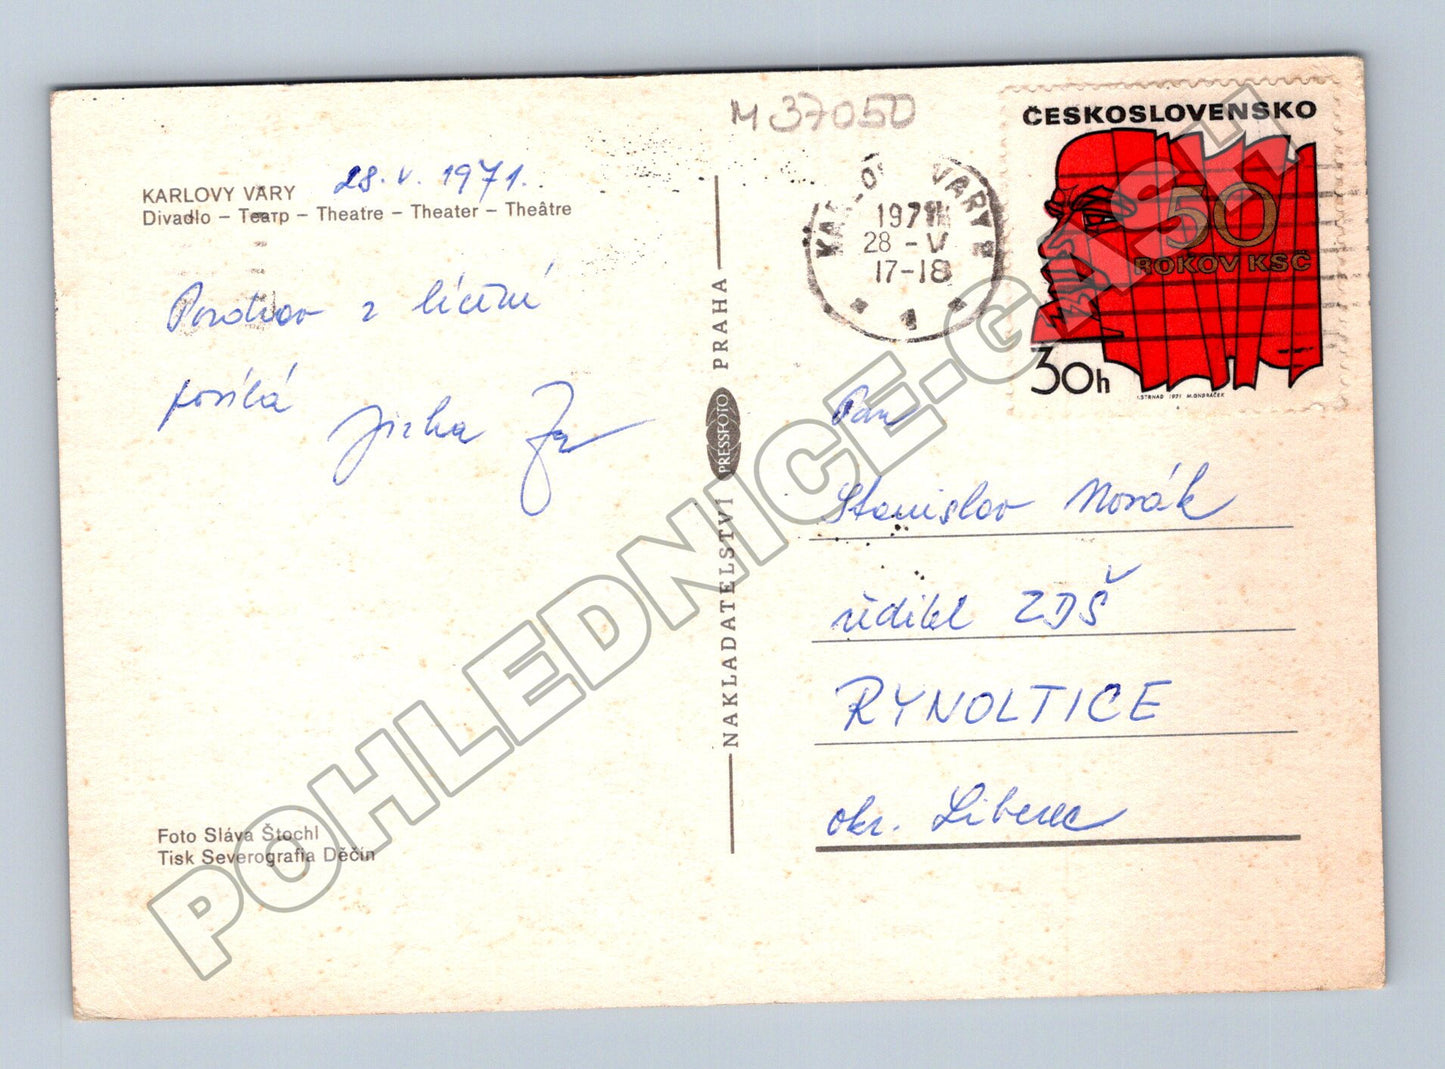 M 37050
ČESKOSLOVENSKO
50
ROKOV KSČ
30h
I. STRNAD 1971 M. ONDRÁČEK
KARLOVY VARY 2
1971
28 -V
17-18
KARLOVY VARY 28. V. 1971.
Divadlo – Театр – Theatre – Theater – Theâtre
Pozdrav z léčení
posílá
Jirka
Foto Sláva Štochl
Tisk Severografia Děčín
NAKLADATELSTVÍ PRESSFOTO PRAHA
Pan
Stanislav Novák
ředitel ZDŠ
RYNOLTICE
okr. Liberec
POHLEDNICE-GASH